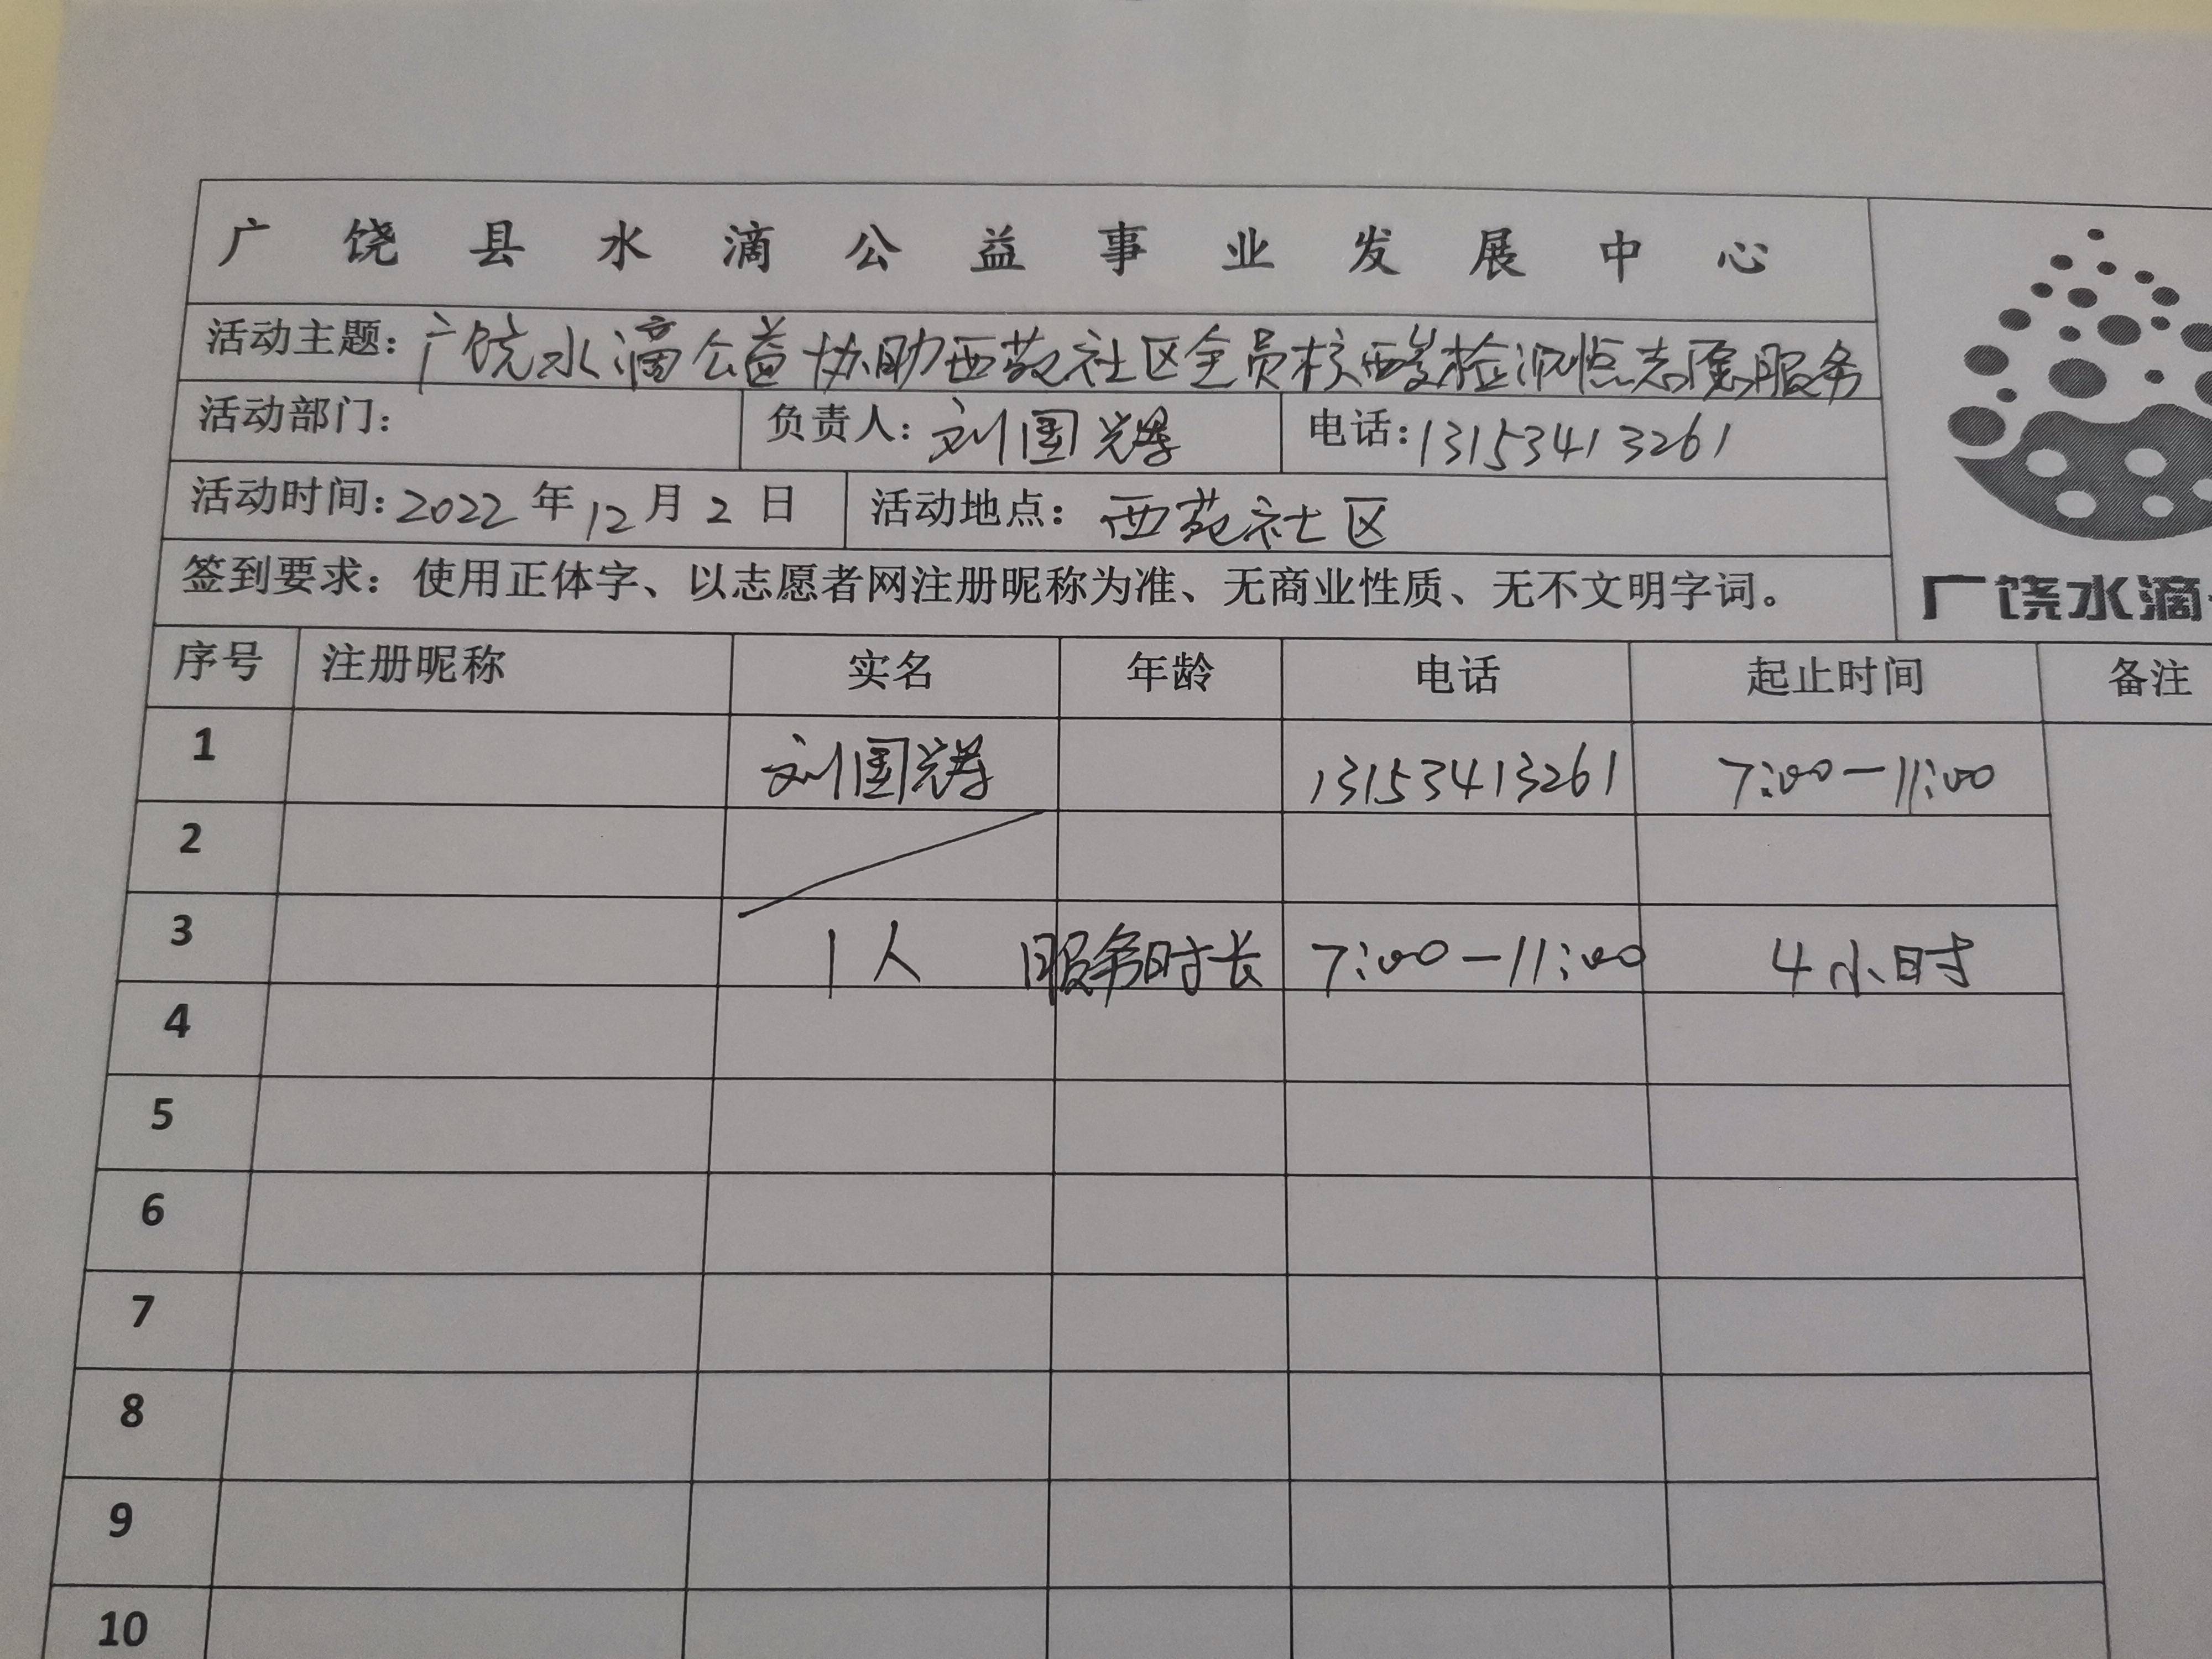 广饶县水滴公益事业发展中心
活动主题：广饶水滴公益协助西苑社区全员核酸检测点志愿服务
活动部门： 负责人：刘国辉 电话：13153413261
活动时间：2022年12月2日 活动地点：西苑社区
签到要求：使用正体字、以志愿者网注册昵称为准、无商业性质、无不文明字词。
广饶水滴
序号 注册昵称 实名 年龄 电话 起止时间 备注
1 刘国辉 13153413261 7:00-11:00
2
3 1人 服务时长 7:00-11:00 4小时
4
5
6
7
8
9
10